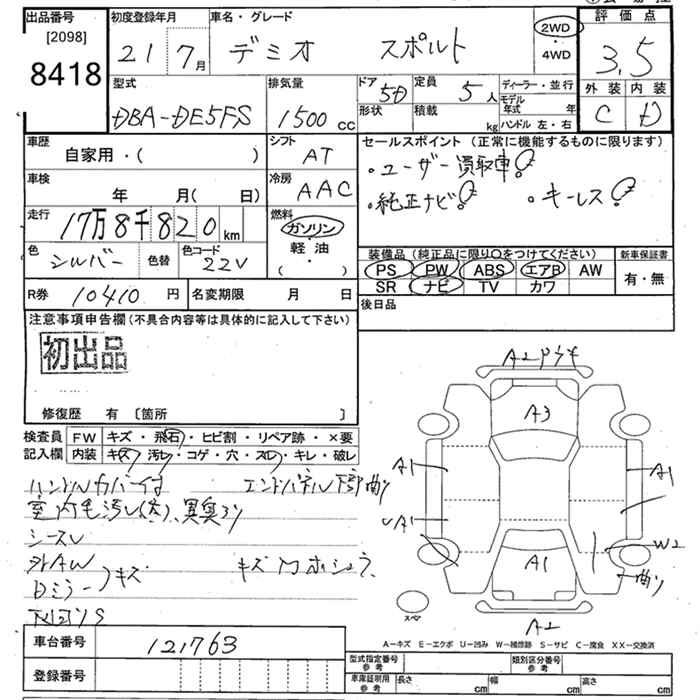 出品番号 [2098] 8418
初度登録年月 21 7月
車名・グレード デミオ スポルト
2WD 4WD
評価点 3.5
外装 C 内装 D
型式 DBA-DE5FS
排気量 1500 CC
ドア 5D 形状
定員 5人 積載 kg
ディーラー・並行
モデル年式 年
ハンドル 左・右
車歴 自家用・( )
シフト AT
セールスポイント (正常に機能するものに限ります)
・ユーザー買取車
・純正ナビ ・キーレス
車検 年 月( 日)
冷房 AAC
走行 17万8千820km
燃料 ガソリン 軽・油 ( ・ )
色 シルバー 色替 色コード 22V
装備品 (純正品に限り○をつけてください) 新車保証書
PS PW ABS エアB AW 有・無
SR ナビ TV カワ
R券 10410円 名変期限 月 日
後日品
注意事項申告欄(不具合内容等は具体的に記入して下さい)
初出品
修復歴 有 〔箇所 〕
検査員記入欄
FW キズ・飛石・ヒビ割・リペア跡・×要
内装 キズ・汚レ・コゲ・穴・スレ・キレ・破レ
ハンドルカバー付 エンドパネル下部曲り
室内毛汚レ(大)、異臭アリ
シースレ
外AW
Dミラー キズ
A2
A3
A1 A1
A1
W2
曲り
A1
スペア
A2
A−キズ E−エクボ U−凹み W−補修跡 S−サビ C−腐食 XX−交換済
車台番号 121763
登録番号
型式指定番号 参考 類別区分番号 参考
車庫証明用 参考 長さ cm 幅 cm 高さ cm